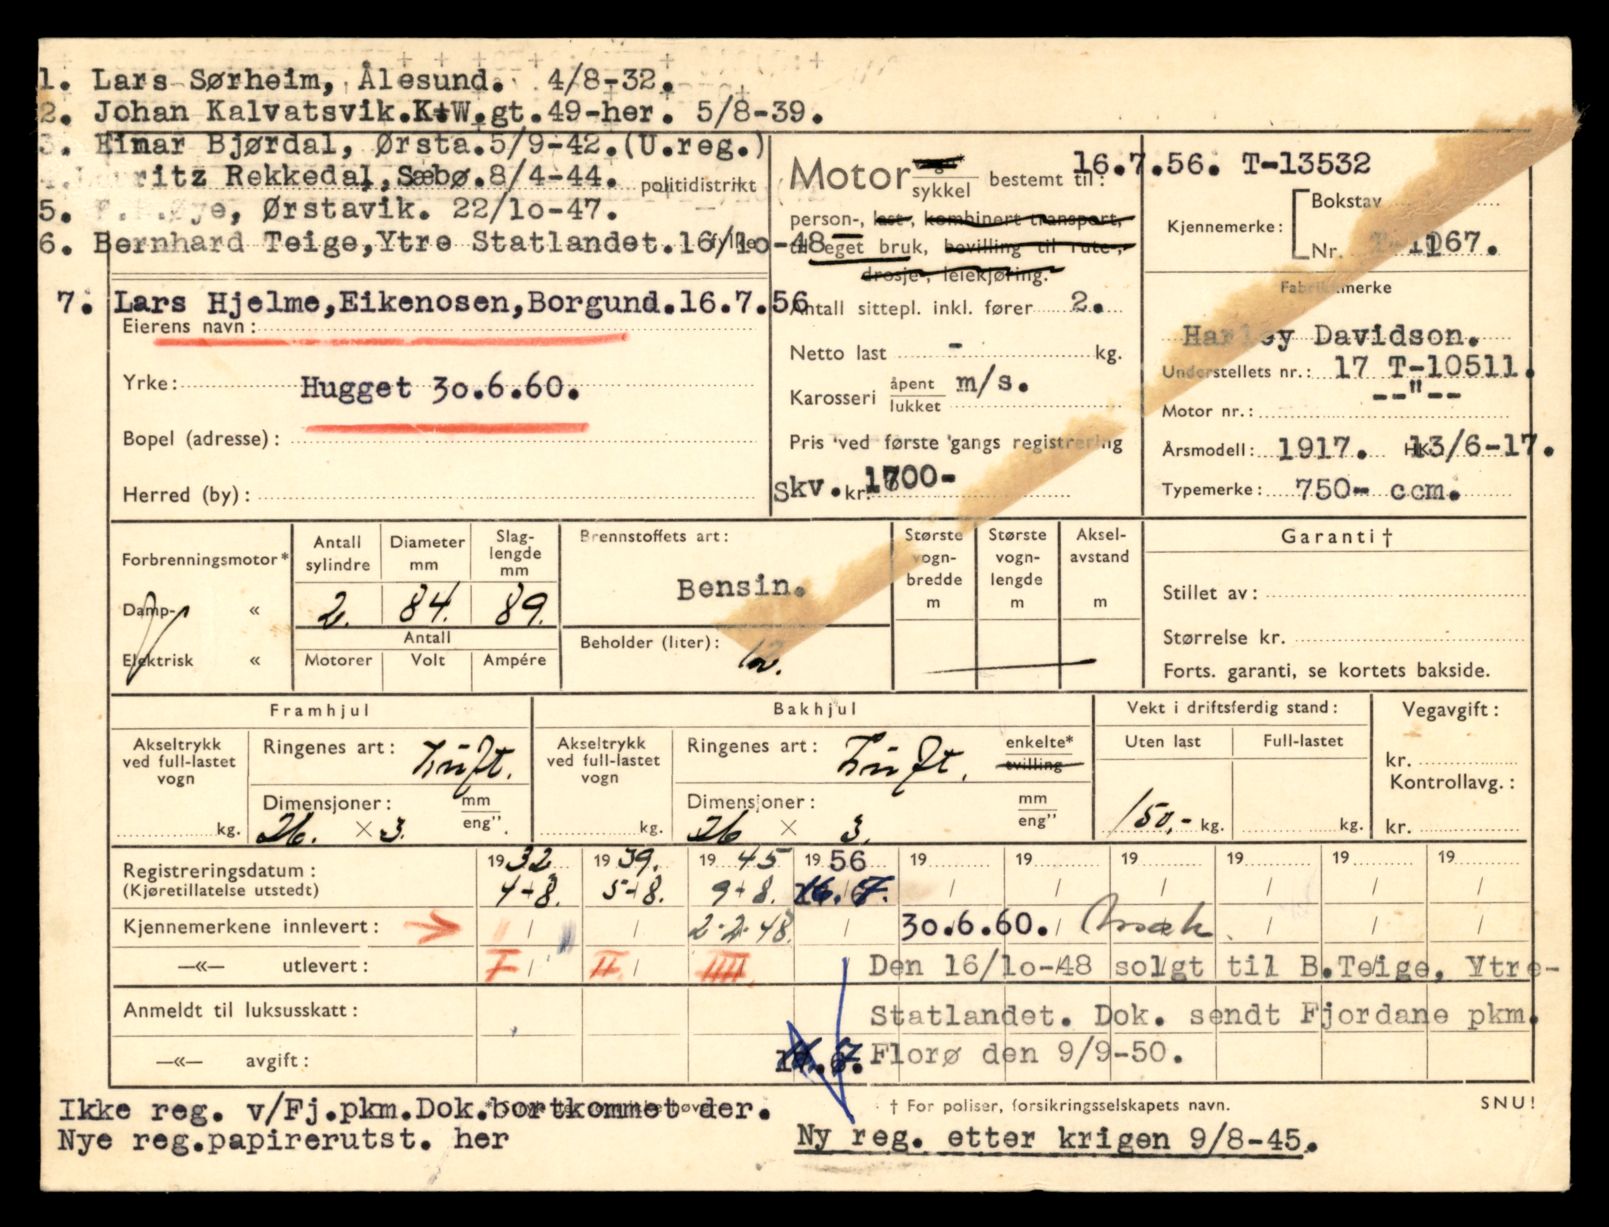 1. Lars Sørheim, Ålesund. 4/8-32.
2. Johan Kalvatsvik.K+W.gt.49-her. 5/8-39.
3. Einar Bjørdal, Ørsta.5/9-42.(U.reg.)
Rekkedal, Sæbø.8/4-44. politidistrikt
5. Ørstavik. 22/1o-47.
6. Bernhard Teige,Ytre Statlandet.16/1o-48
7. Lars Hjelme,Eikenosen,Borgund.16.7.56
Eierens navn:
Yrke: Hugget 3o.6.60.
Bopel (adresse):
Herred (by):
Motor sykkel bestemt til: 16.7.56. T-13532
person-, last-, kombinert transport,
eget bruk, bevilling til rute-,
drosje-, leiekjøring.
Antall sittepl. inkl. fører 2.
Netto last - kg.
Karosseri åpent lukket m/s.
Pris ved første gangs registrering
Skv. kr.
Kjennemerke: Bokstav
Nr.
Fabrikkmerke
Harley Davidson.
Understellets nr.: 17 T-10511.
Motor nr.: --"--
Årsmodell: 1917. HK. 13/6-17.
Typemerke: 750- ccm.
Forbrenningsmotor*
Damp- «
Elektrisk «
Antall sylindre 2.
Diameter mm 84.
Slaglengde mm 89.
Antall
Motorer Volt Ampére
Brennstoffets art:
Bensin.
Beholder (liter): 12.
Største vognbredde m
Største vognlengde m
Akselavstand m
Garanti †
Stillet av:
Størrelse kr.
Forts. garanti, se kortets bakside.
Framhjul
Akseltrykk ved full-lastet vogn kg.
Ringenes art: Luft.
Dimensjoner: 26. × 3. mm eng".
Bakhjul
Akseltrykk ved full-lastet vogn kg.
Ringenes art: Luft. enkelte* tvilling
Dimensjoner: 26 × 3. mm eng"
Vekt i driftsferdig stand:
Uten last Full-lastet
150,- kg. kg.
Vegavgift:
kr.
Kontrollavg.:
kr.
Registreringsdatum: 1932 1939. 1945 1956 19 19 19 19 19 19
(Kjøretillatelse utstedt) 4/8. 5/8. 9/8. 16. 7.
Kjennemerkene innlevert: 2.2.48. 3o.6.60.
—«— utlevert: I II IIII
Den 16/1o-48 solgt til B.Teige, Ytre-
Anmeldt til luksusskatt: Statlandet. Dok. sendt Fjordane pkm.
—«— avgift: Florø den 9/9-50.
Ikke reg. v/Fj.pkm.Dok.bortkommet der.
† For poliser, forsikringsselskapets navn. SNU!
Nye reg.papirerutst. her
Ny reg. etter krigen 9/8-45.